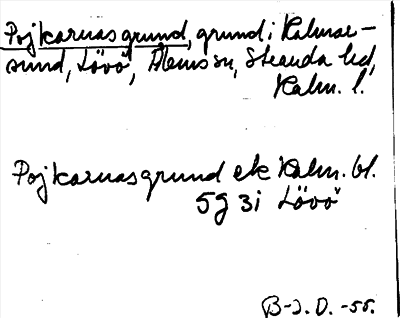 Pojkarnasgrund, grund i Kalmar-
sund, Lövö, Ålems sn, Stranda hd,
Kalm. l.
Pojkarnasgrund ek Kalm. bl.
5g 3i Lövö
B-J. D. -55.